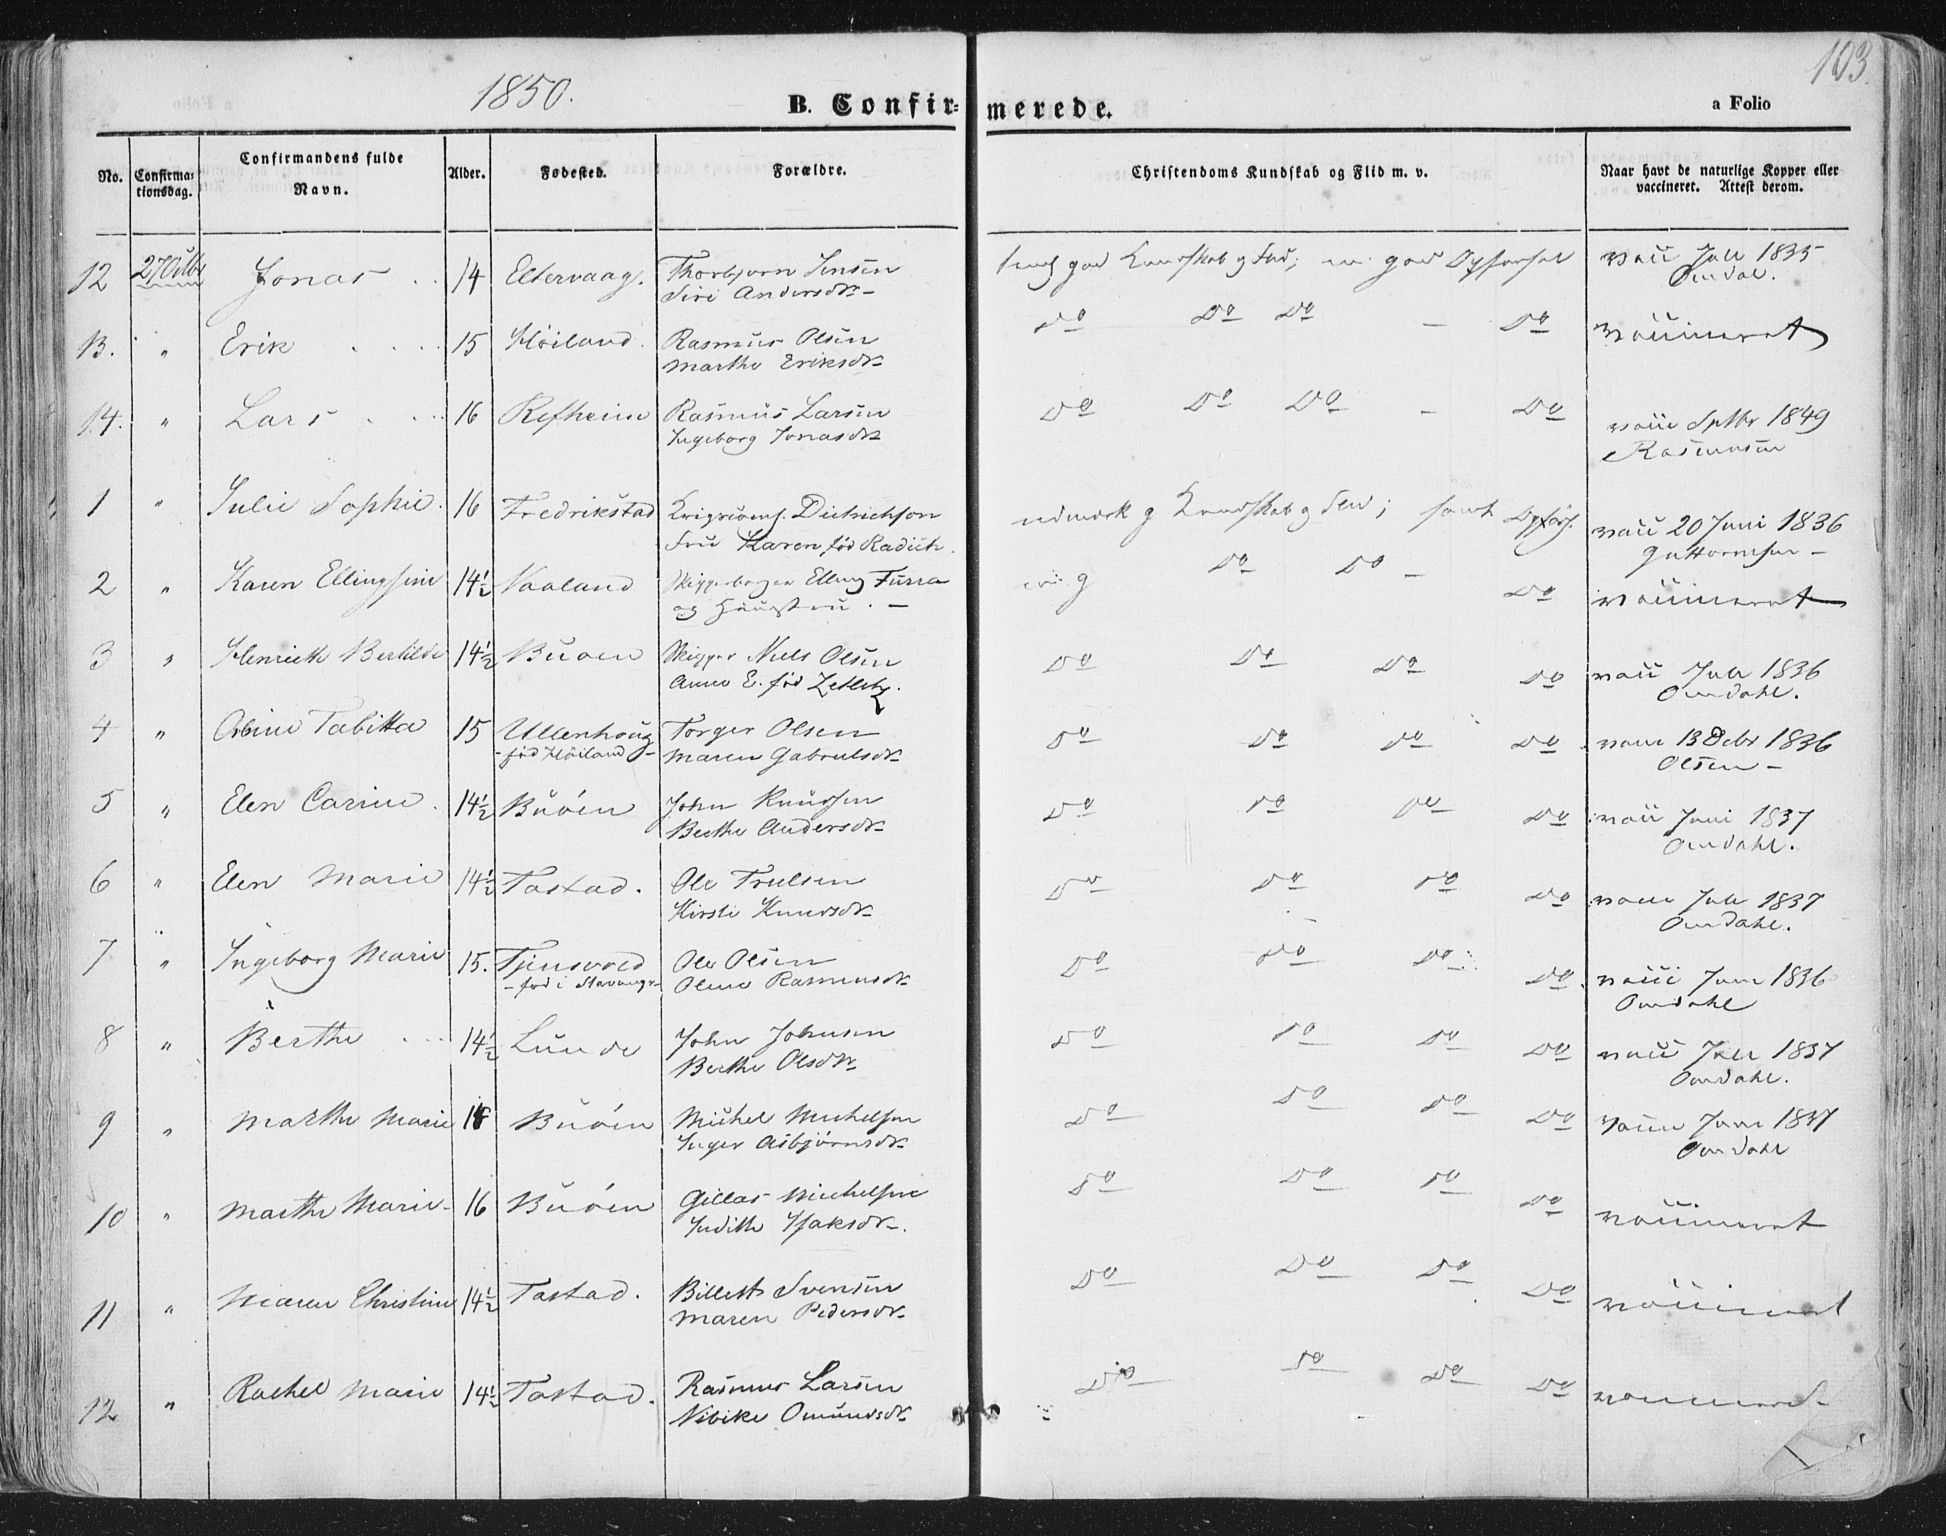 1850.
103.
B. Confirmerede.
a Folio
No. Confirmationsdag. Confirmandens fulde Navn. Alder. Fødested. Forældre. Christendoms Kundskab og Flid m. v. Naar havt de naturlige Kopper eller vaccineret. Attest derom.
12 27 Octbr Jonas 14 Eltervaag. Thorbjorn Jensen god Kundskab og Flid; god Opførsel vacc Juli 1835
Siri Andersdtr Omdal.
13. " Erik 15 Høiland. Rasmus Olsen Do Do Do – Do vaccineret
Marthe Eriksdtr
14. " Lars 16 Refheim Rasmus Larsen Do Do Do – Do vacc Septbr 1849
Ingeborg Jonasdtr Rasmussen
1 " Julie Sophie. 16 Fredrikstad Dietrichson Kundskab og Flid; samt Opførs. vacc 20 Juni 1836
Fru Karen fød Radich. Guttormsen –
2 " Karen Ellingsine 14½ Vaaland Elling Furra Do Do – Do vaccineret
og Hustru. –
3 " Henriette Bertilde 14½ Buøen Skipper Niels Olsen Do Do Do Do vacc Juli 1836
Anne E. fød Zetlitz. Omdahl.
4 " Tabitta 15 Ullenhoug Torger Olsen Do Do Do Do vacc 13 Octbr 1836
- fød Høiland - Maren Gabrielsdtr Olsen –
5 " Elen Carine. 14½ Buøen John Knudsen Do Do Do Do vacc Juni 1837
Berthe Andersdtr Omdahl.
6 " Elen Marie 14½ Tastad. Ole Trulsen Do Do Do Do vacc Juli 1837
Kirsti Knudsdtr Omdahl.
7 " Ingeborg Marie 15. Tjensvold Ole Olsen Do Do Do Do vacc Juni 1836
- fød i Stavanger Olene Rasmusdtr Omdahl
8 " Berthe 14½ Lunde John Johnsen Do Do Do Do vacc Juli 1837
Berthe Olsdtr Omdahl.
9 " Marthe Marie Buøen Michel Michelsen Do Do Do Do vacc Juni 1837
Inger Asbjørnsdtr Omdahl
10 " Marthe Marie 16 Buøen Gillas Michelsen Do Do Do Do vaccineret
Judith Isaksdtr.
11 " Maren Christine 14½ Tastad. Svensen Do Do Do Do vaccineret
Maren Pedersdtr
12 " Rachel Marie 14½ Tastad. Rasmus Larsen Do Do Do Do vaccineret
Vibike Omundsdtr